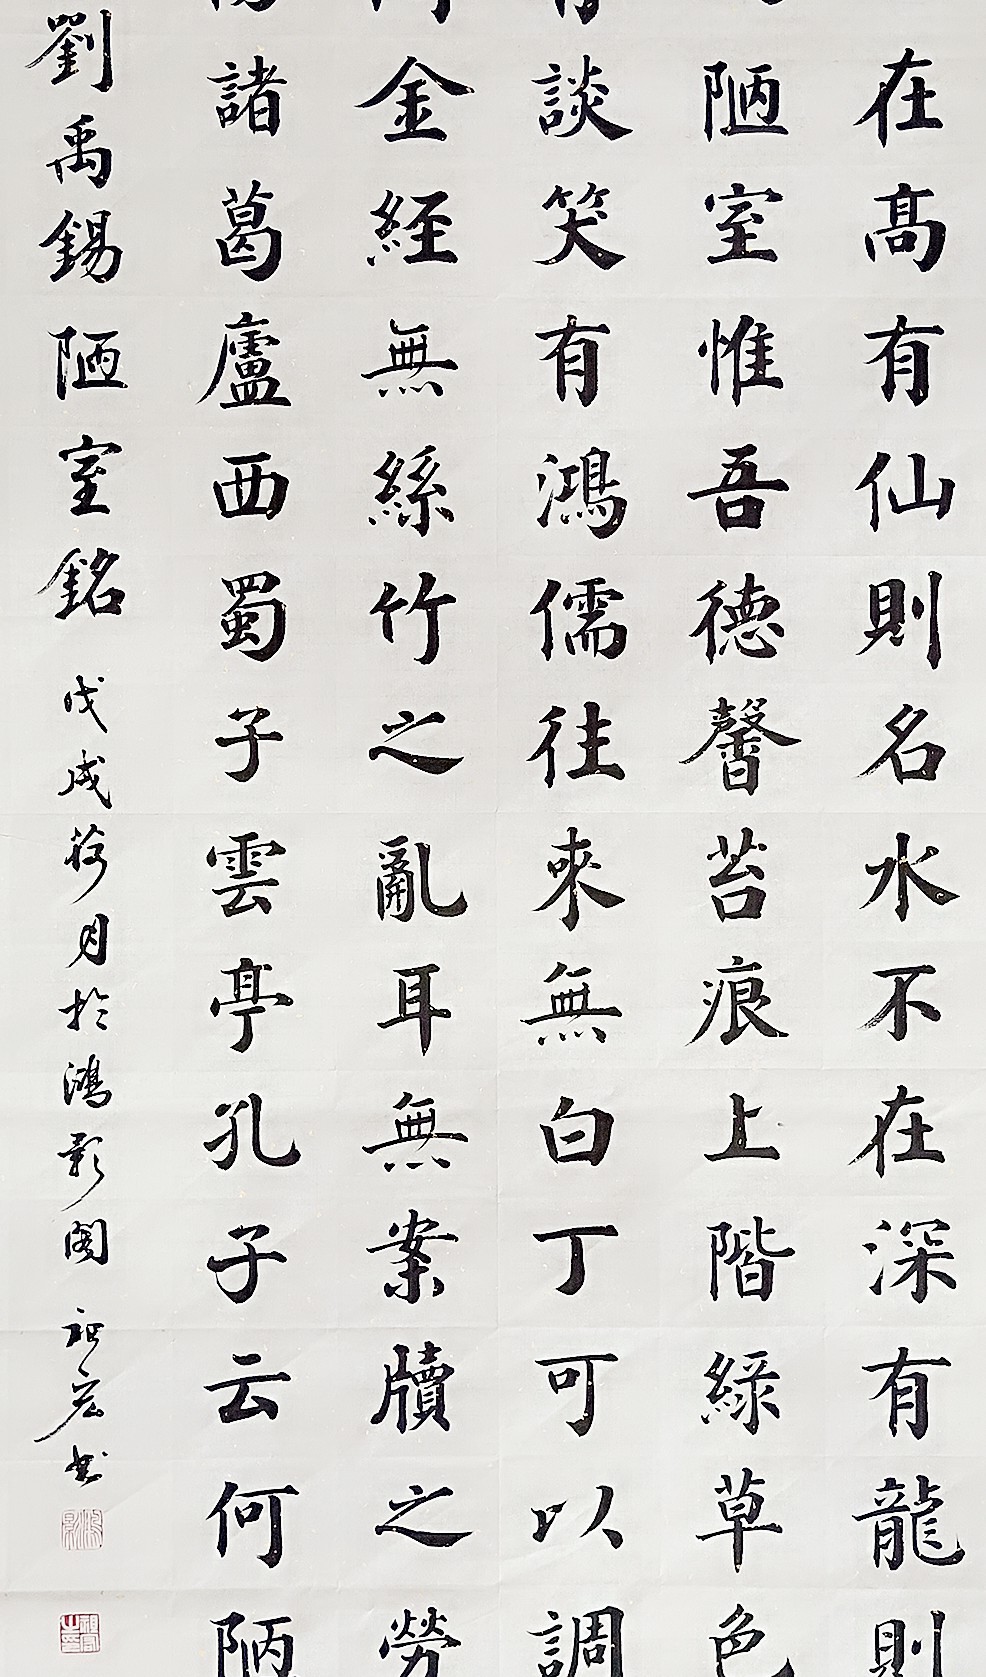 在高有仙則名水不在深有龍則
陋室惟吾德馨苔痕上階綠草色
談笑有鴻儒往來無白丁可以調
金經無絲竹之亂耳無案牘之勞
諸葛廬西蜀子雲亭孔子云何陋
劉禹錫陋室銘 戊戌荷月於鴻影閣 祖宏書